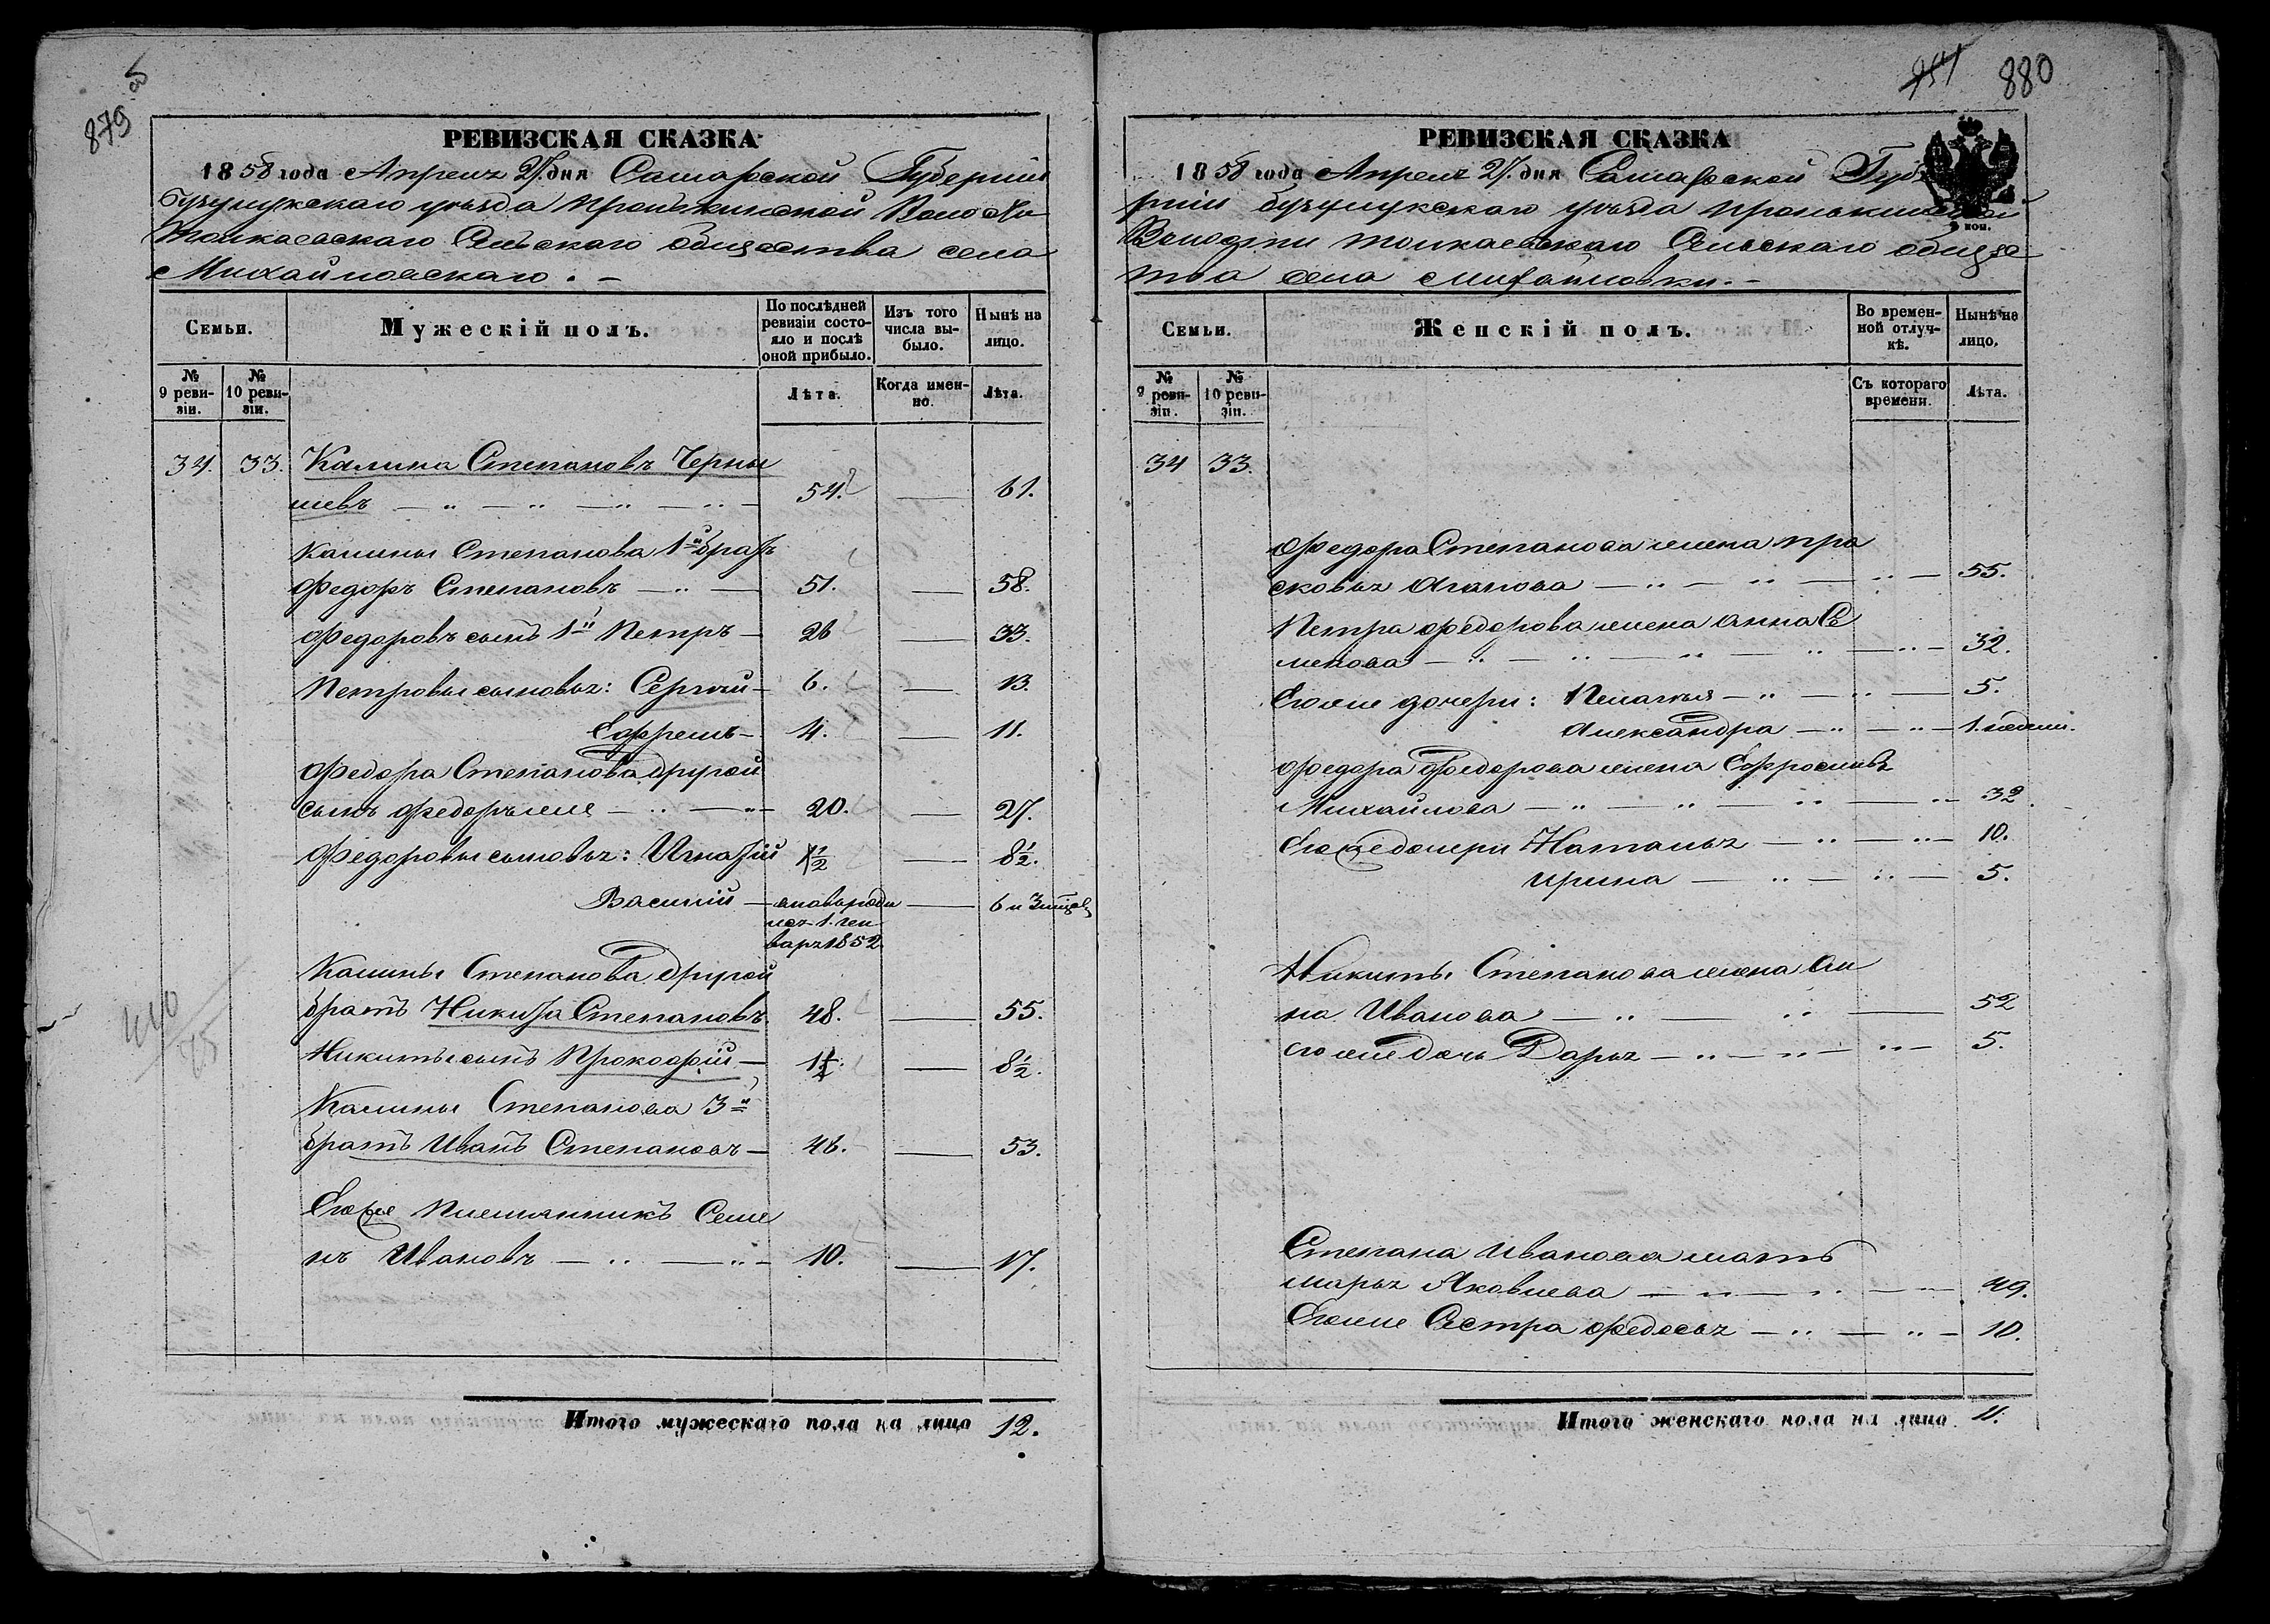 879 об
РЕВИЗСКАЯ СКАЗКА
1858 года Апреля 27. дня Самарской Губернiи
Бузулукскаго уѣзда Пронькинской Волости
Толкаевскаго Сельскаго Общества села
Михайловскаго. –
Семьи.
Мужескiй полъ.
По послѣдней ревизiи состояло и послѣ оной прибыло.
Изъ того числа выбыло.
Нынѣ на лицо.
№ 9 ревизiи.
№ 10 ревизiи.
Лѣта.
Когда именно.
Лѣта.
34. 33. Калина Степановъ Черны
шевъ 54. 61.
Калины Степанова 1й братъ
Федоръ Степановъ 51. 58.
Федоровъ сынъ 1й Петръ 26 33.
Петровы сыновья: Сергѣй 6. 13.
Ефремъ 4. 11.
Федора Степанова другой
сынъ Федоръ же 20. 27.
Федоровы сыновья: Игнатiй 1½ 8½.
Василiй вновь роди 6 и 3 мѣсяц
лся 1. ген
варя 1852
Калины Степанова другой
братъ Никита Степановъ 48. 55.
Никиты сынъ Прокофiй 1½. 8½.
Калины Степанова 3й
братъ Иванъ Степановъ 46. 53.
Его же племянникъ Семе
нъ Ивановъ 10. 17.
Итого мужескаго пола на лицо 12.
951 880
РЕВИЗСКАЯ СКАЗКА
1858 года Апреля 27. дня Самарской Губе
рнiи Бузулукскаго уѣзда Пронькинской
Волости Толкаевскаго Сельскаго общес
тва села Михайловки. –
коп.
Семьи.
Женскiй полъ.
Во временной отлучкѣ.
Нынѣ на лицо.
№ 9 ревизiи.
№ 10 ревизiи.
Съ котораго времени.
Лѣта.
34 33.
Федора Степанова жена Пра
сковья Агапова 55.
Петра Федорова жена Анна Се
менова 32.
Его же дочери: Пелагея 5.
Александра 1. недели.
Федора Федорова жена Ефросинья
Михайлова 32.
Его же дочери Наталья 10.
Ирина 5.
Никиты Степанова жена Ан
на Иванова 52
его же дочь Дарья 5.
Степана Иванова мать
Марья Яковлева 49.
Его же Сестра Федосья 10.
Итого женскаго пола на лицо 11.